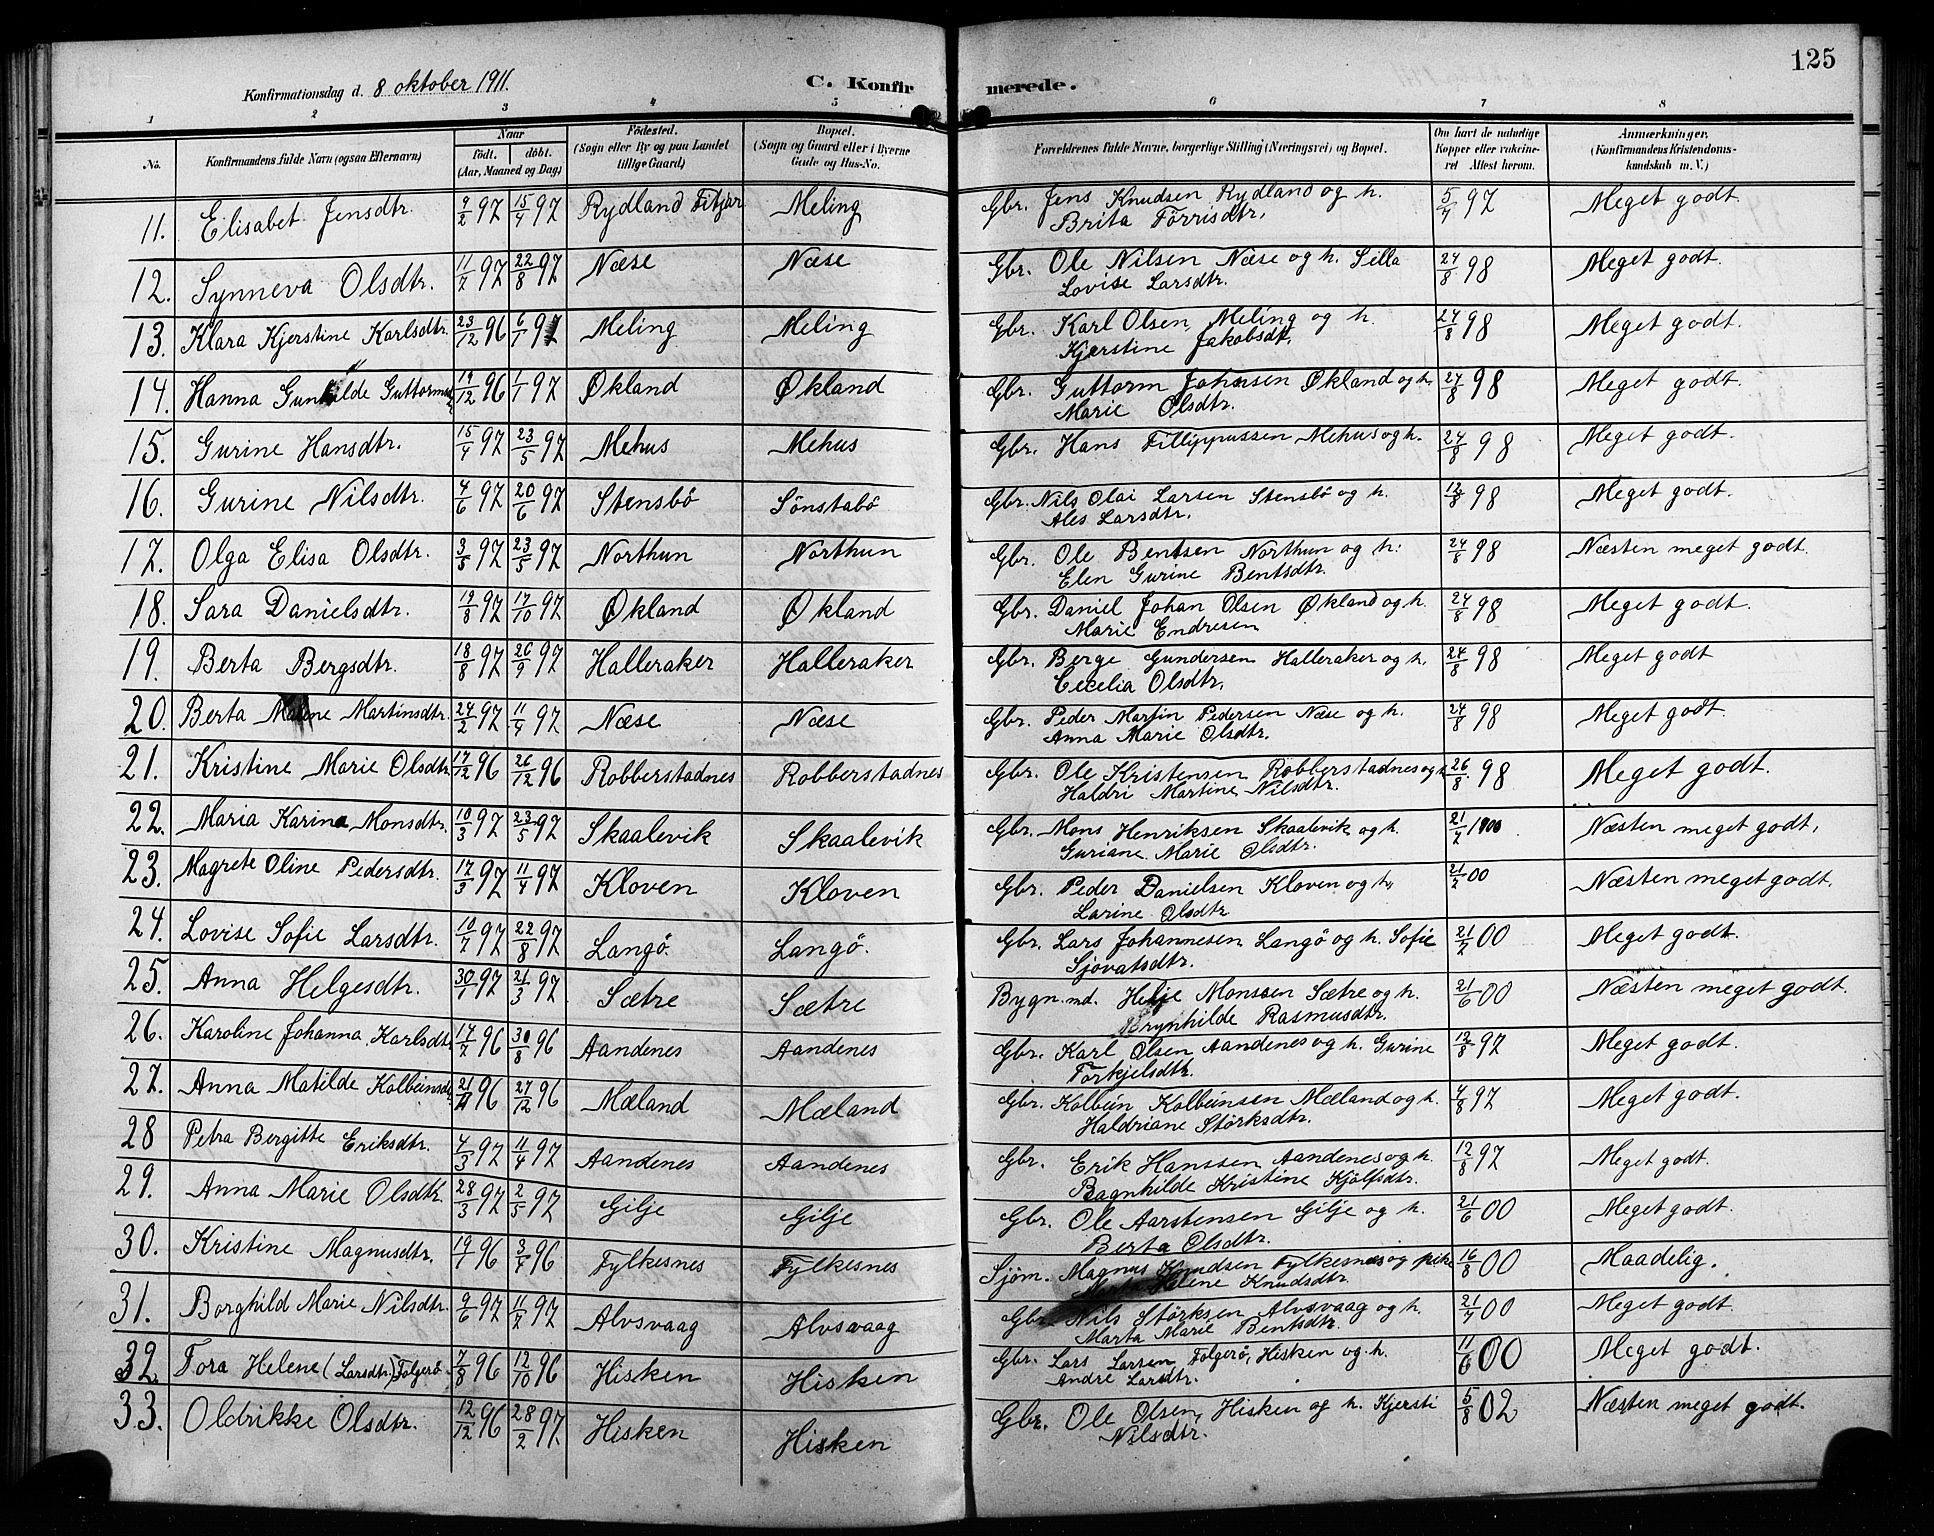 125
Konfirmationsdag d. 8 oktober 1911.
C. Konfirmerede.
1 2 3 4 5 6 7 8
No. Konfirmandens fulde Navn (ogsaa Efternavn) Naar födt. döbt. (Aar, Maaned og Dag) Födested. (Sogn eller By og paa Landet tillige Gaard) Bopæl. (Sogn og Gaard eller i Byerne Gade og Hus-No.) Forældrenes fulde Navne, borgerlige Stilling (Næringsvei) og Bopæl. Om havt de naturlige Kopper eller vakcineret Attest herom. Anmærkninger. (Konfirmandens Kristendomskundskab m. V.)
11. Elisabet Jensdtr. 9/2 97 15/4 97 Rydland Fitjar Meling Gbr. Jens Knudsen Rydland og h. 5/7 97 Meget godt.
Brita Törrisdtr.
12. Synneva Olsdtr. 11/7 97 22/8 97 Næse Næse Gbr. Ole Nilsen Næse og h. Silla 24/8 98 Meget godt.
Lovise Larsdtr.
13. Klara Kjerstine Karlsdtr. 23/12 96 6/1 97 Meling Meling Gbr. Karl Olsen Meling og h. 24/8 98 Meget godt.
Kjerstine Jakobsdtr.
14. Hanna Gunhilde Guttormsdtr 19/12 96 1/1 97 Økland Økland Gbr. Guttorm Johnsen Økland og h. 24/8 98 Meget godt.
Marie Olsdtr.
15. Gurine Hansdtr. 15/4 97 23/5 97 Mehus Mehus Gbr. Hans Fillippussen Mehus og h. 24/8 98 Meget godt.
16. Gurine Nilsdtr. 4/6 97 20/6 97 Stensbö Sönstabö Gbr. Nils Olai Larsen Stensbö og h. 12/8 98 Meget godt.
Ales Larsdtr.
17. Olga Elisa Olsdtr. 3/5 97 23/5 97 Northun Northun Gbr. Ole Bentsen Northun og h: 24/8 98 Næsten meget godt.
Elen Gurine Bentsdtr.
18. Sara Danielsdtr. 19/8 97 17/10 97 Økland Økland Gbr. Daniel Johan Olsen Økland og h. 24/8 98 Meget godt.
Marie Endresen
19. Berta Bergsdtr. 18/8 97 26/9 97 Halleraker Halleraker Gbr. Berge Gundersen Halleraker og h. 24/8 98 Meget godt
Cecelia Olsdtr.
20. Berta Malene Martinsdtr. 24/2 97 11/4 97 Næse Næse Gbr. Peder Martin Pedersen Næse og h. 24/8 98 Meget godt.
Anna Marie Olsdtr.
21. Kristine Marie Olsdtr 17/12 96 26/12 96 Robberstadnes Robberstadnes Gbr. Ole Kristensen Robberstadnes og h 26/8 98 Meget godt.
Haldri Martine Nilsdtr.
22. Maria Karina Monsdtr. 10/3 97 23/5 97 Skaalevik Skaalevik Gbr. Mons Henriksen Skaalevik og h. 21/7 1900. Næsten meget godt.
Guriane Marie Olsdtr.
23. Magrete Oline Pedersdtr. 17/3 97 11/4 97 Kloven Kloven Gbr. Peder Danielsen Kloven og h. 21/2 00 Næsten meget godt.
Larine Olsdtr
24. Lovise Sofie Larsdtr. 10/7 97 22/8 97 Langö. Langö. Gbr. Lars Johannesen Langö og h. Sofie 21/7 00 Meget godt.
Sjovatsdtr.
25. Anna Helgesdtr. 30/1 97 21/3 97 Sætre Sætre Bygn.md. Helje Monssen Sætre og h. 21/6 00 Næsten meget godt.
Brynhilde Rasmusdtr.
26. Karoline Johanna Karlsdtr 17/7 96 30/8 96 Aandenes Aandenes Gbr. Karl Olsen Aandenes og h. Gurine 12/8 97 Meget godt.
Torkjelsdtr.
27. Anna Matilde Kolbeinsdtr 21/11 96 27/12 96 Mæland Mæland Gbr. Kolbein Kolbeinsen Mæland og h. 4/8 97 Meget godt.
Haldriane Störksdtr.
28 Petra Bergitte Eriksdtr. 4/3 97 11/4 97 Aandenes Aandenes Gbr. Erik Hanssen Aandenes og h. 12/8 97 Meget godt.
Bagnhilde Kristine Kjölfsdtr.
29. Anna Marie Olsdtr. 28/3 97 2/5 97 Gilje Gilje Gbr. Ole Aarstensen Gilje og h. 21/6 00 Meget godt.
Berta Olsdtr.
30. Kristine Magnusdtr. 19/1 96 3/4 96 Fylkesnes Fylkesnes Sjöm. Magnus Knudsen Fylkesnes og pike 16/8 00 Maadelig.
Helene Knudsdtr.
31. Borghild Marie Nilsdtr. 9/6 97 11/7 97 Alvsvaag Alvsvaag Gbr. Nils Störksen Alvsvaag og h. 21/7 00 Meget godt.
Marta Marie Bentsdtr.
32. Tora Helene (Larsdtr.) Folgerö 7/8 96 12/10 96 Hisken Hisken Gbr. Lars Larsen Folgerö, Hisken og h. 11/6 00 Meget godt.
Andre Larsdtr.
33. Oldrikke Olsdtr. 12/12 96 28/2 97. Hisken Hisken Gbr. Ole Olsen, Hisken og h. Kjersti 5/8 02 Næsten meget godt.
Nilsdtr.